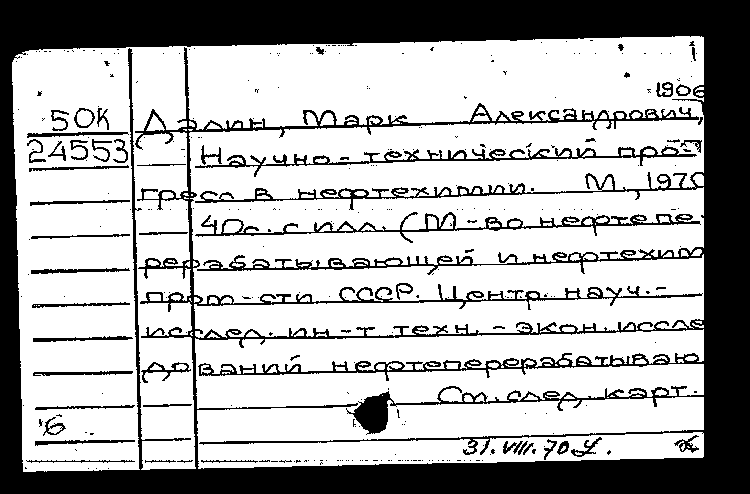 1
1906
50К Далин, Марк Александрович,
24553 Научно-технический про-
гресс в нефтехимии. М., 1970
40с. с илл. (М-во нефтепе-
рерабатывающей и нефтехим
пром-сти СССР. Центр. науч.-
исслед. ин-т техн.-экон. иссле
дований нефтеперерабатываю
См. след. карт.
'6
31.VIII.70